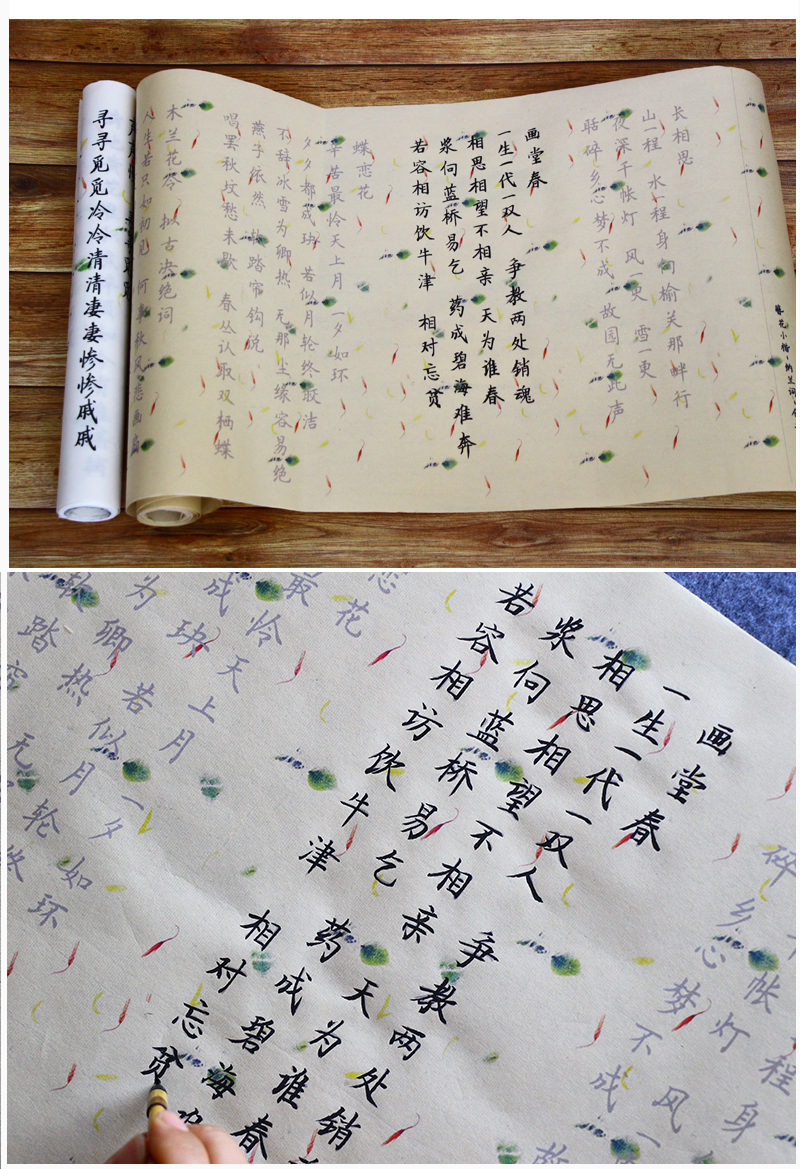 簪花小楷·纳兰词
长相思
山一程 水一程 身向榆关那畔行
夜深千帐灯 风一更 雪一更
聒碎乡心梦不成 故园无此声
画堂春
一生一代一双人 争教两处销魂
相思相望不相亲 天为谁春
浆向蓝桥易乞 药成碧海难奔
若容相访饮牛津 相对忘贫
蝶恋花
辛苦最怜天上月 一夕如环
夕夕都成玦 若似月轮终皎洁
不辞冰雪为卿热 无那尘缘容易绝
燕子依然 软踏帘钩说
唱罢秋坟愁未歇 春丛认取双栖蝶
木兰花令 拟古决绝词
人生若只如初见 何事秋风悲画扇
寻寻觅觅冷冷清清凄凄惨惨戚戚
程 身
帐灯 风一
碎乡心梦不成 故
画堂春
一生一代一双人 争教两处销
相思相望不相亲 天为谁春
浆向蓝桥易乞 药成碧海
若容相访饮牛津 相对忘贫
恋花
最怜天上月 一夕如环
成玦 若似月轮终
为卿热 无
软踏